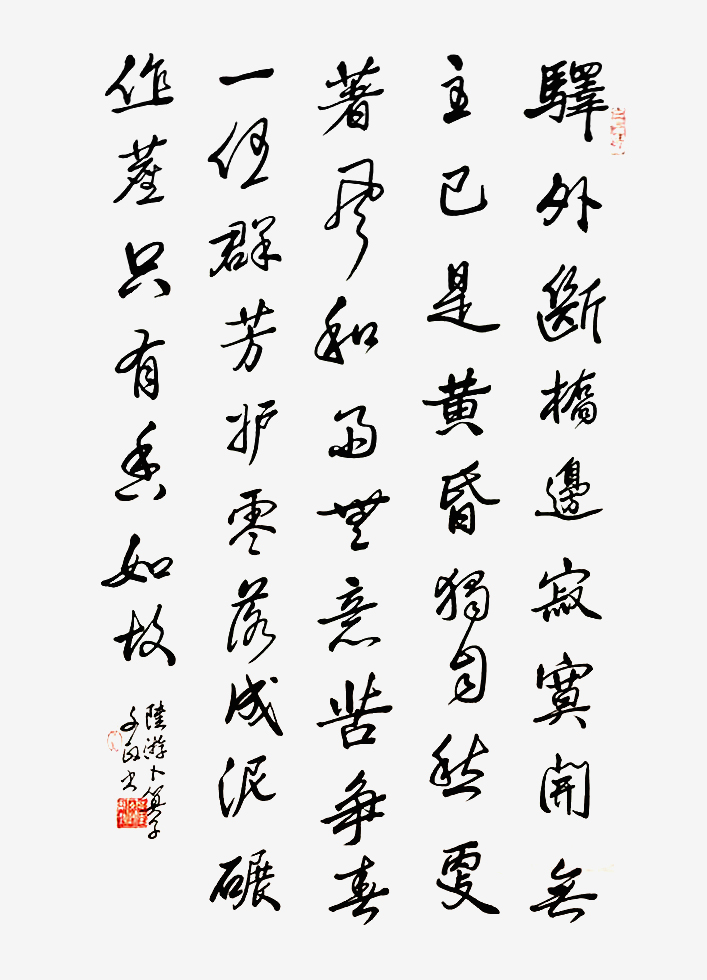 驛外斷橋邊寂寞開無
主已是黄昏獨自愁更
著風和雨無意苦爭春
一任群芳妒零落成泥碾
作塵只有香如故
陸游卜算子
书